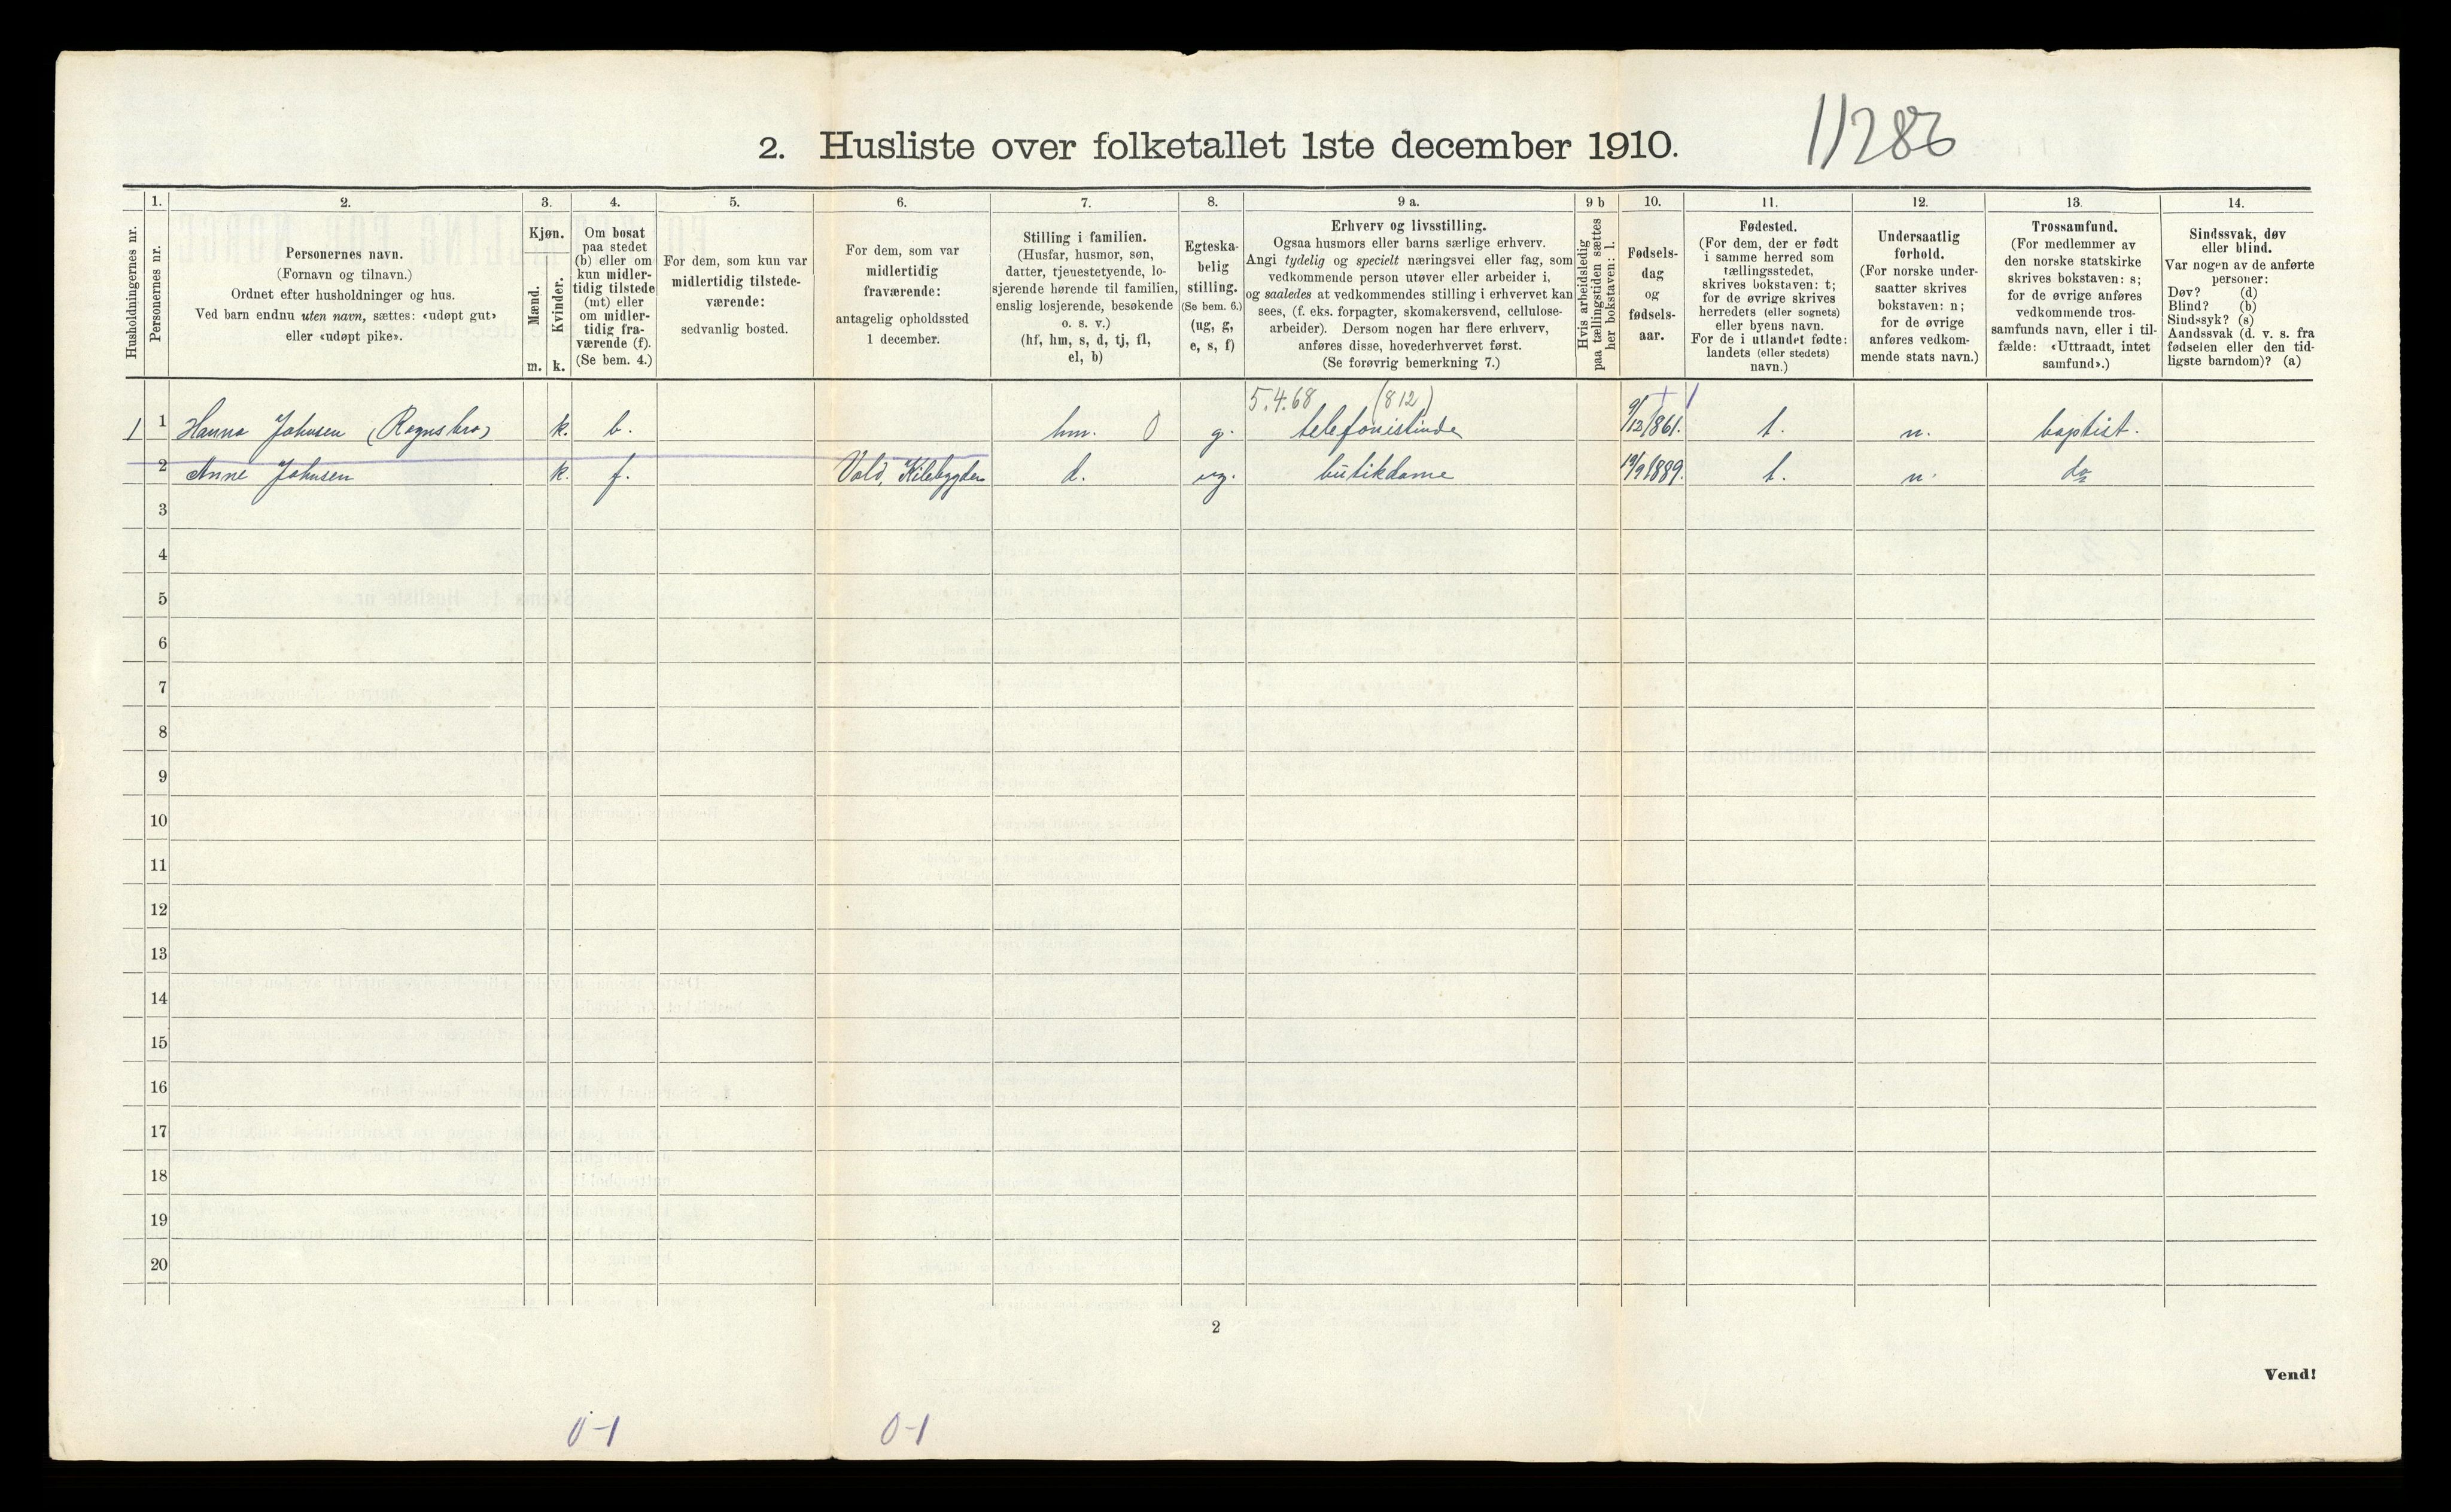 11286
2. Husliste over folketallet 1ste december 1910.
Husholdningernes nr.
1.
Personernes nr.
2.
Personernes navn.
(Fornavn og tilnavn.)
Ordnet efter husholdninger og hus.
Ved barn endnu uten navn, sættes: «udøpt gut»
eller «udøpt pike».
3.
Kjøn.
Mænd.
Kvinder.
m. k.
4.
Om bosat
paa stedet
(b) eller om
kun midler-
tidig tilstede
(mt) eller
om midler-
tidig fra-
værende (f).
(Se bem. 4.)
5.
For dem, som kun var
midlertidig tilstede-
værende:
sedvanlig bosted.
6.
For dem, som var
midlertidig
fraværende:
antagelig opholdssted
1 december.
7.
Stilling i familien.
(Husfar, husmor, søn,
datter, tjenestetyende, lo-
sjerende hørende til familien,
enslig losjerende, besøkende
o. s. v.)
(hf, hm, s, d, tj, fl,
el, b)
8.
Egteska-
belig
stilling.
(Se bem. 6.)
(ug, g,
e, s, f)
9 a.
Erhverv og livsstilling.
Ogsaa husmors eller barns særlige erhverv.
Angi tydelig og specielt næringsvei eller fag, som
vedkommende person utøver eller arbeider i,
og saaledes at vedkommendes stilling i erhvervet kan
sees, (f. eks. forpagter, skomakersvend, cellulose-
arbeider). Dersom nogen har flere erhverv,
anføres disse, hovederhvervet først.
(Se forøvrig bemerkning 7.)
9 b
Hvis arbeidsledig
paa tællingstiden sættes
her bokstaven: l.
10.
Fødsels-
dag
og
fødsels-
aar.
11.
Fødested.
(For dem, der er født
i samme herred som
tællingsstedet,
skrives bokstaven: t;
for de øvrige skrives
herredets (eller sognets)
eller byens navn.
For de i utlandet fødte:
landets (eller stedets)
navn.)
12.
Undersaatlig
forhold.
(For norske under-
saatter skrives
bokstaven: n;
for de øvrige
anføres vedkom-
mende stats navn.)
13.
Trossamfund.
(For medlemmer av
den norske statskirke
skrives bokstaven: s;
for de øvrige anføres
vedkommende tros-
samfunds navn, eller i til-
fælde: «Uttraadt, intet
samfund».)
14.
Sindssvak, døv
eller blind.
Var nogen av de anførte
personer:
Døv? (d)
Blind? (b)
Sindssyk? (s)
Aandssvak (d. v. s. fra
fødselen eller den tid-
ligste barndom)? (a)
5.4.68 (812)
1 1 Hanna Johnsen (Rognsbro) k. b. hm. 0 g. telefonistinde 9/12 1861. t. n. baptist.
2 Anne Johnsen k. f. Vold, Kilebygden d. ug. butikdame 19/9 1889. t. n. do
3
4
5
6
7
8
9
10
11
12
13
14
15
16
17
18
19
20
2
Vend!
0-1 0-1